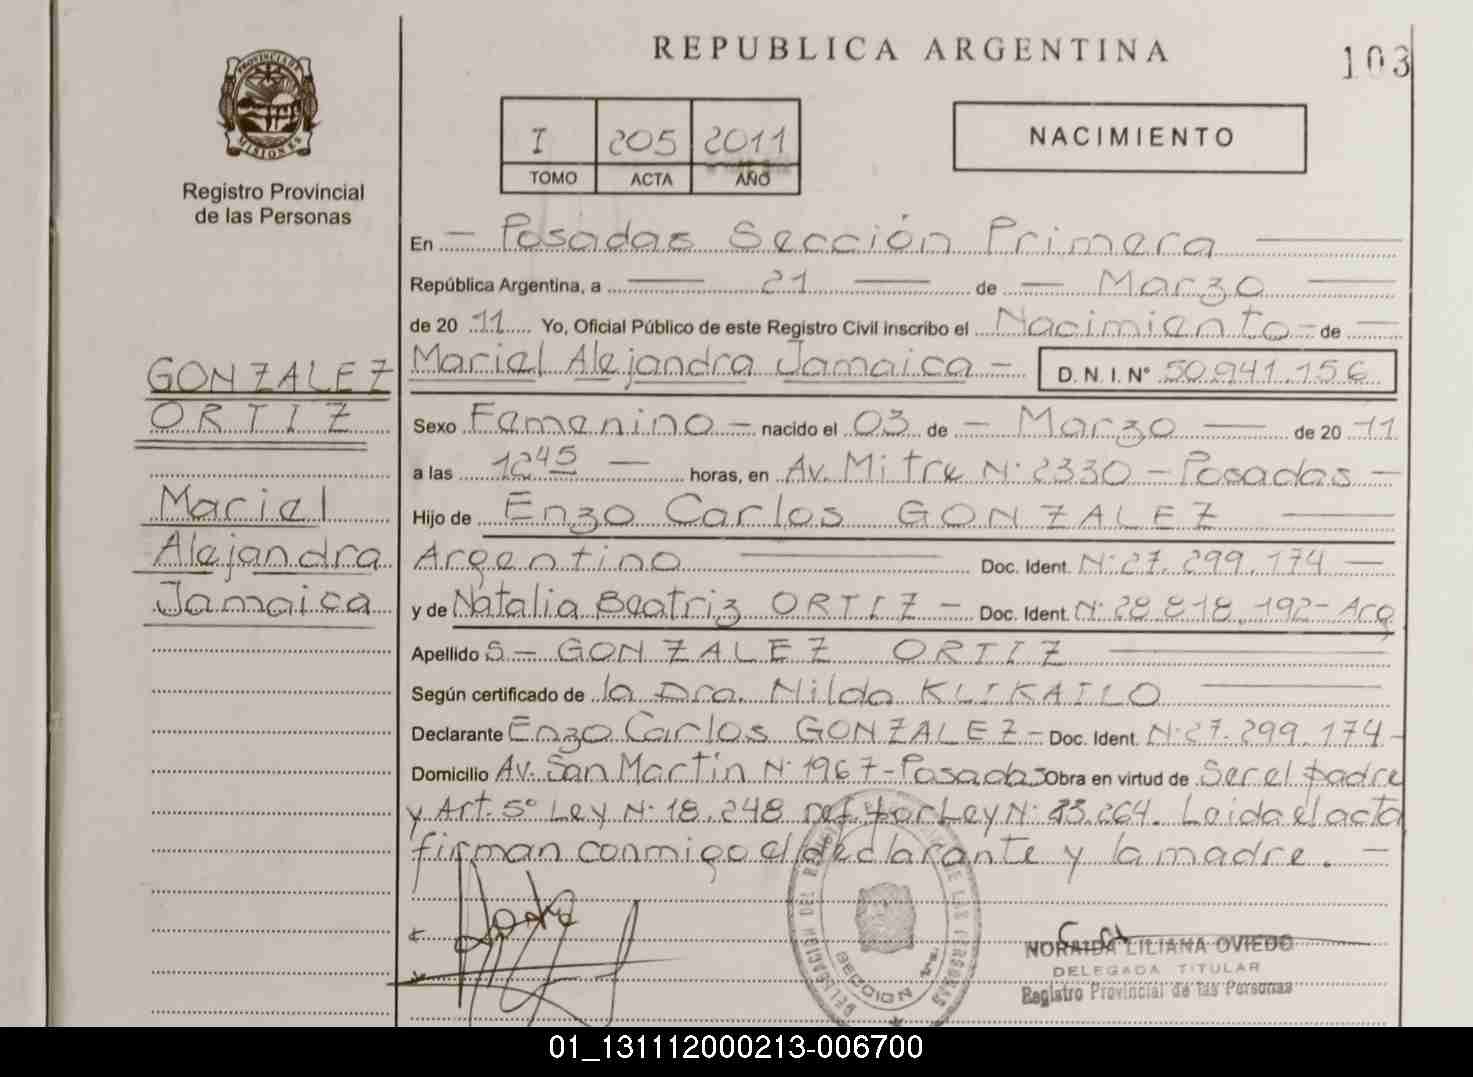 REPUBLICA ARGENTINA
103
PROVINCIA DE
MISIONES
Registro Provincial
de las Personas
I 205 2011
TOMO ACTA AÑO
NACIMIENTO
En - Posadas Sección Primera
República Argentina, a 21 de - Marzo
de 20 11 Yo, Oficial Público de este Registro Civil inscribo el Nacimiento - de
Mariel Alejandra Jamaica - D. N. I. N° 50.941.156
GONZALEZ
ORTIZ
Mariel
Alejandra
Jamaica
Sexo Femenino - nacido el 03 de - Marzo de 20 11
a las 1245 horas, en Av. Mitre N° 2330 - Posadas -
Hijo de Enzo Carlos GONZALEZ
Argentino Doc. Ident. N° 27.299.174
y de Natalia Beatriz ORTIZ - Doc. Ident. N° 28.818.192 - Arg
Apellido S - GONZALEZ ORTIZ
Según certificado de la Dra. Nilda KLIKAILO
Declarante Enzo Carlos GONZALEZ - Doc. Ident. N° 27.299.174 -
Domicilio Av. San Martin N° 1967 - Posadas Obra en virtud de Ser el padre
y Art. 5° Ley N° 18.248 ref. por Ley N° 23.264. Leida el acta
firman conmigo el declarante y la madre. -
SECCION 1ra.
NORAIDA LILIANA OVIEDO
DELEGADA TITULAR
Registro Provincial de las Personas
01_131112000213-006700